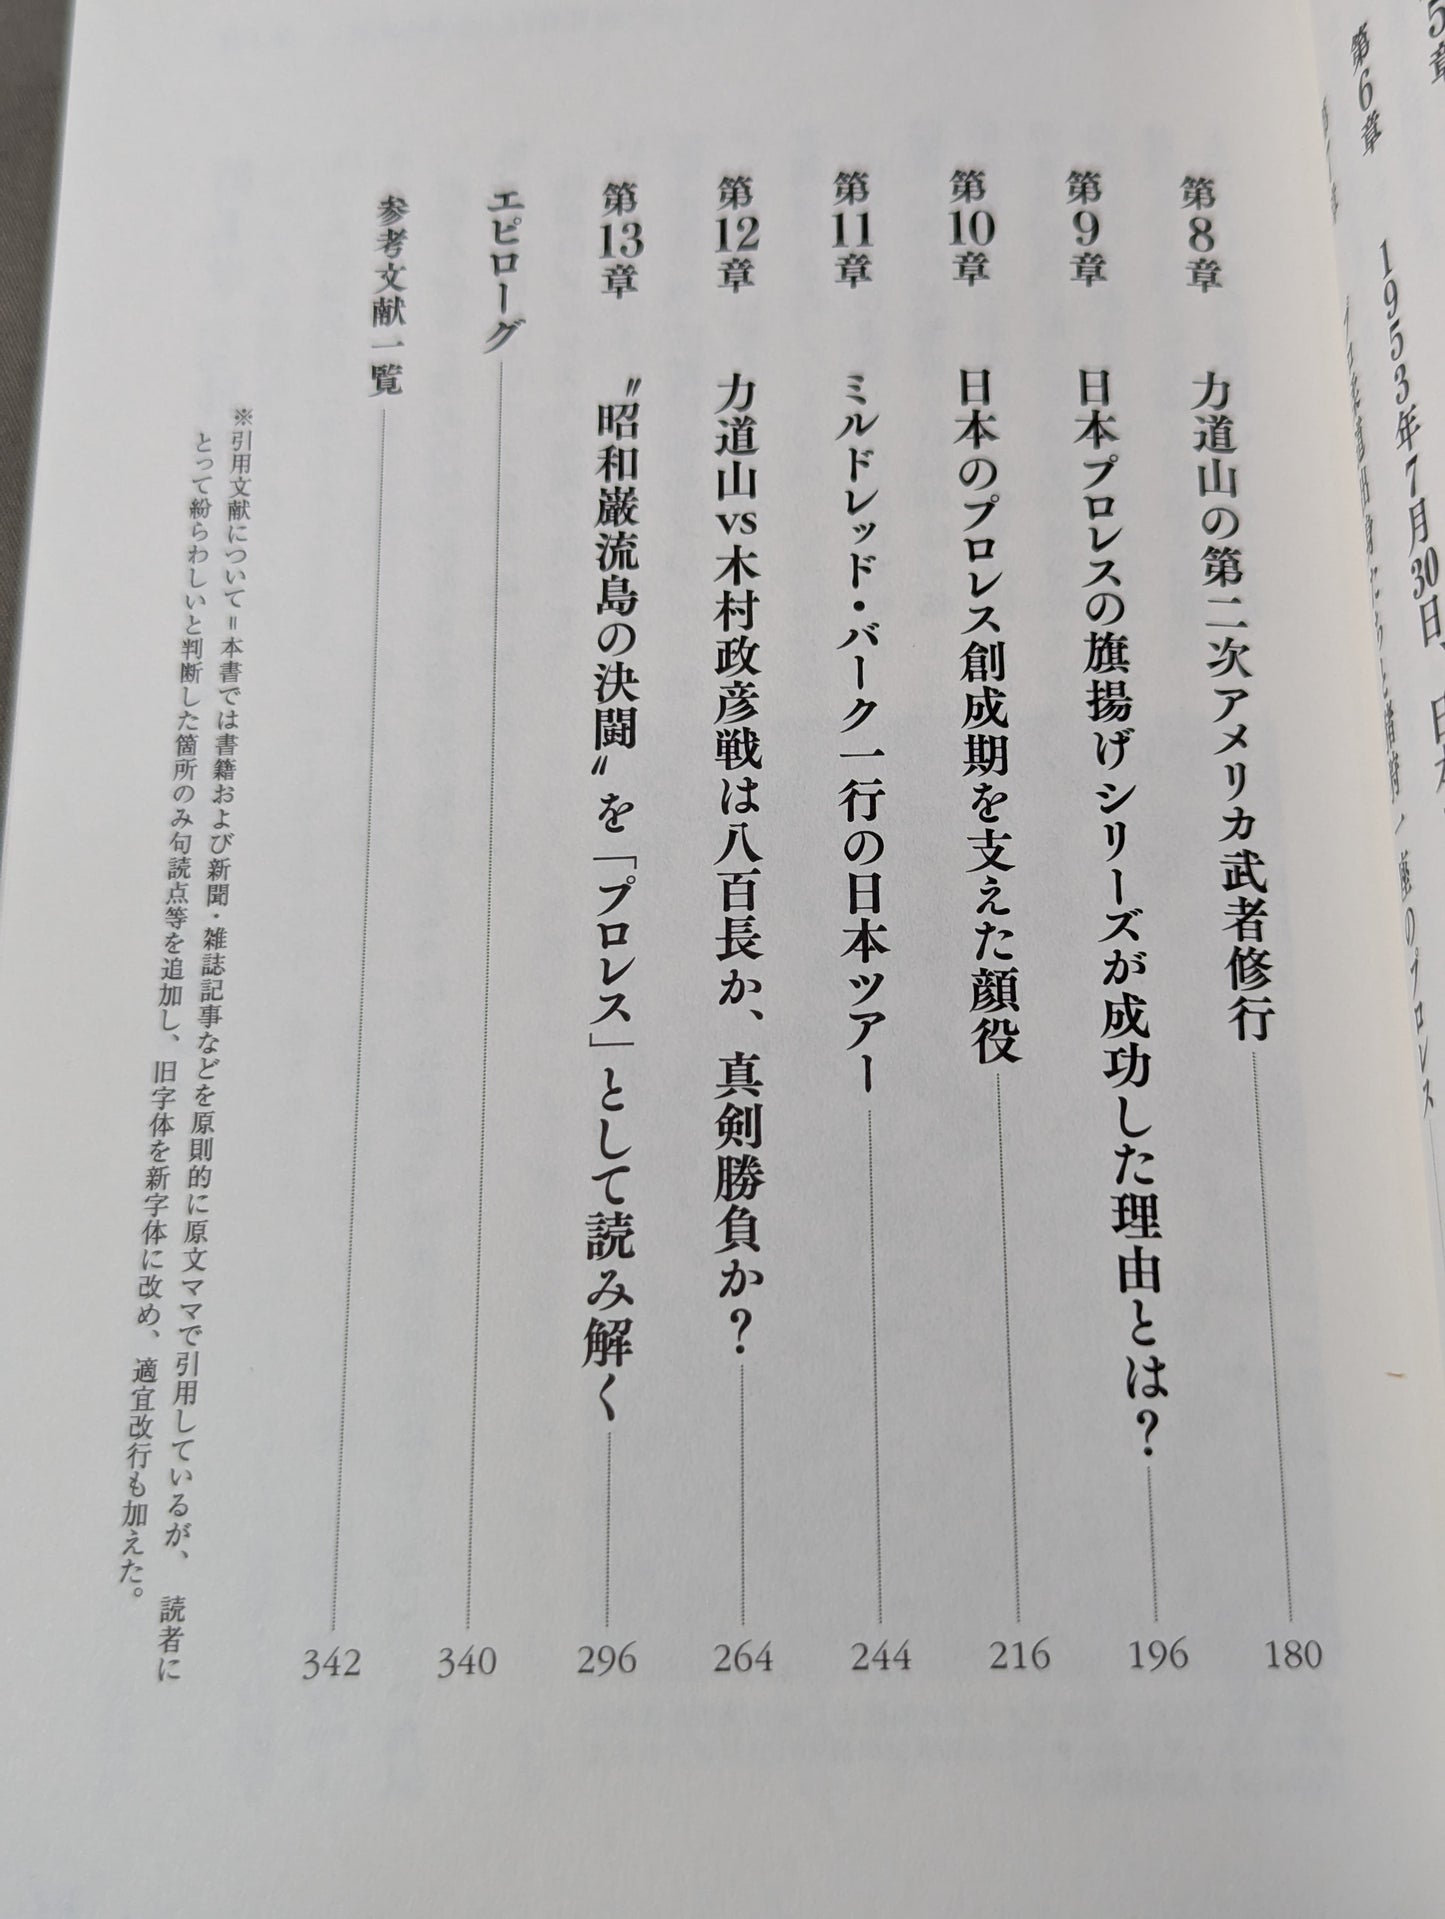 第6章
1953年7月30日、
第8章 力道山の第二次アメリカ武者修行 180
第9章 日本プロレスの旗揚げシリーズが成功した理由とは？ 196
第10章 日本のプロレス創成期を支えた顔役 216
第11章 ミルドレッド・バーク一行の日本ツアー 244
第12章 力道山vs木村政彦戦は八百長か、真剣勝負か？ 264
第13章 〝昭和巌流島の決闘〟を「プロレス」として読み解く 296
エピローグ 340
参考文献一覧 342
※引用文献について＝本書では書籍および新聞・雑誌記事などを原則的に原文ママで引用しているが、読者に
とって紛らわしいと判断した箇所のみ句読点等を追加し、旧字体を新字体に改め、適宜改行も加えた。